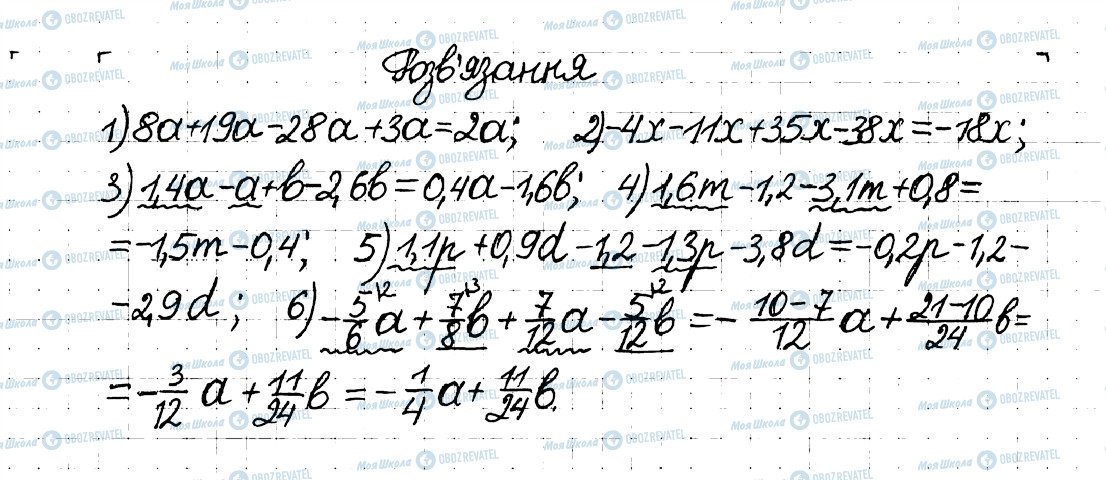 Розв'язання
1) 8a+19a-28a+3a=2a; 2) -4x-11x+35x-38x=-18x;
3) 1,4a-a+b-2,6b=0,4a-1,6b; 4) 1,6m-1,2-3,1m+0,8=
=-1,5m-0,4; 5) 1,1p+0,9d-1,2-1,3p-3,8d=-0,2p-1,2-
-2,9d; 6) -5/6a+7/8b+7/12a-5/12b=-(10-7)/12a+(21-10)/24b=
=-3/12a+11/24b=-1/4a+11/24b.